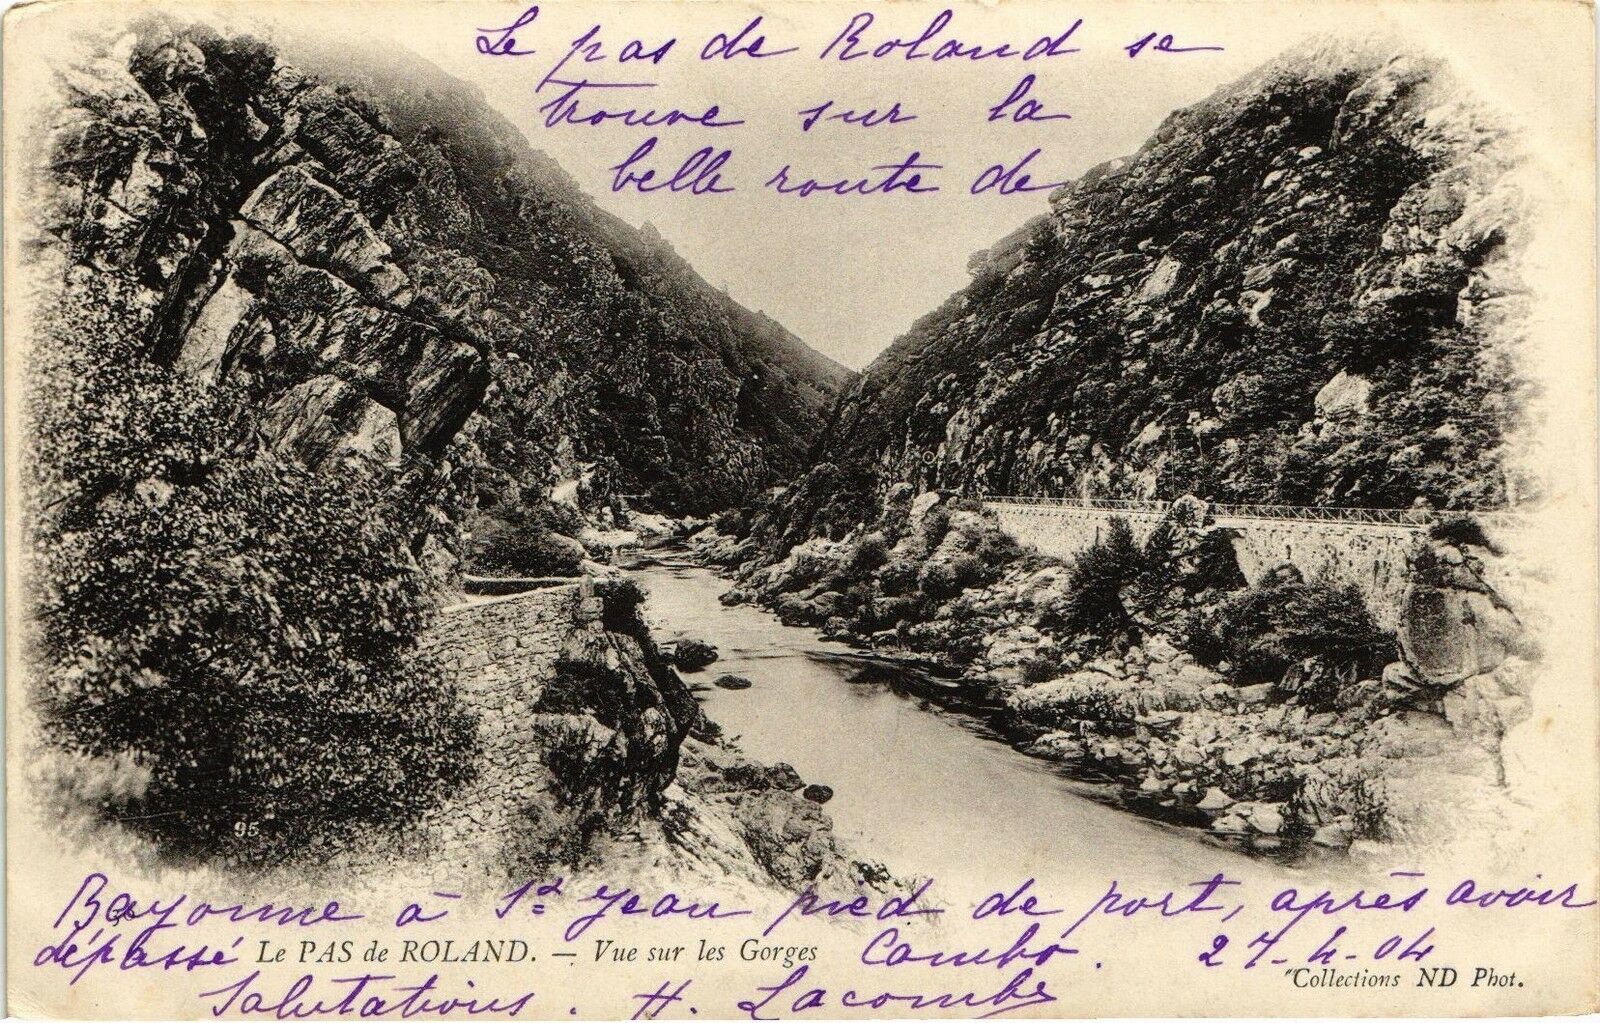 Le pas de Roland se
trouve sur la
belle route de
95
Bayonne à St Jean pied de port, après avoir
dépassé Le PAS de ROLAND. — Vue sur les Gorges Cambo. 27-4-04
"Collections ND Phot.
Salutations. H. Lacombe